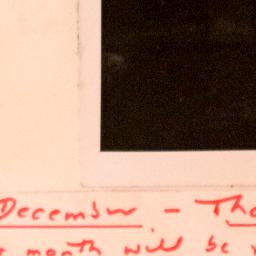 December - Tha
month will be